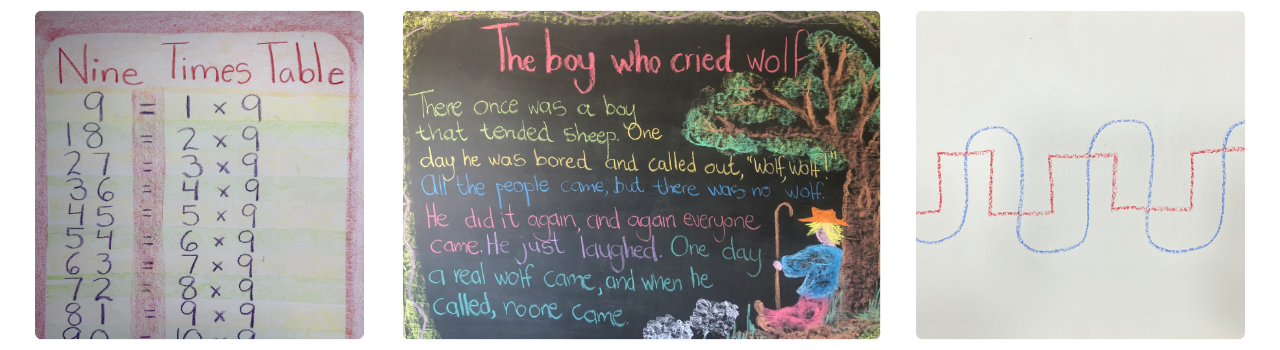 Nine Times Table
9 = 1 x 9
18 = 2 x 9
27 = 3 x 9
36 = 4 x 9
45 = 5 x 9
54 = 6 x 9
63 = 7 x 9
72 = 8 x 9
81 = 9 x 9
90 = 10 x 9
The boy who cried wolf
There once was a boy
that tended sheep. One
day he was bored and called out, "Wolf, wolf!"
All the people came, but there was no wolf.
He did it again, and again everyone
came. He just laughed. One day
a real wolf came, and when he
called, noone came.